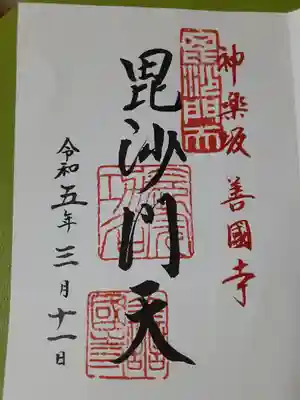 神樂坂 善國寺
毘沙門天
令和五年三月十一日